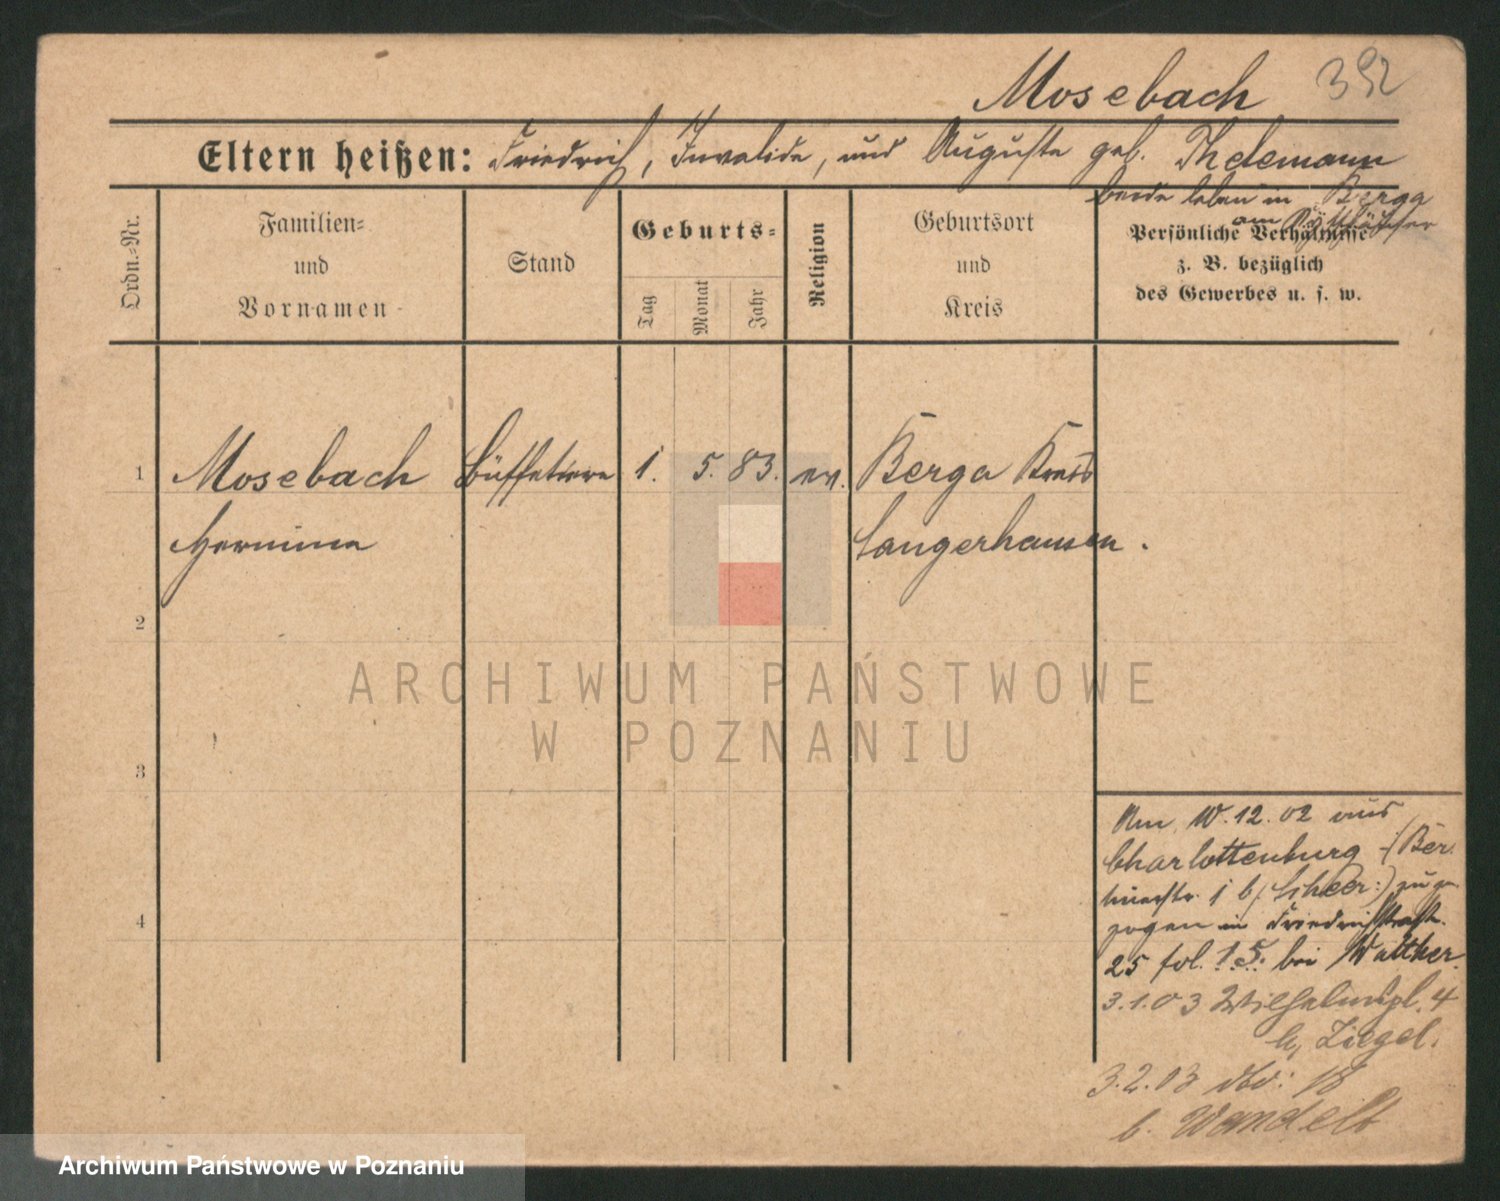 Mosebach 392
Eltern heißen: Friedrich, Invalide, und Auguste geb. Thelemann
beide leben in Berga
am Kyffhäuser
Ordn.-Nr.
Familien-
und
Vornamen
Stand
Geburts-
Tag
Monat
Jahr
Religion
Geburtsort
und
Kreis
Persönliche Verhältnisse
z. B. bezüglich
des Gewerbes u. s. w.
1 Mosebach Büffetiere 1. 5. 83. ev. Berga Kreis
Hermine Sangerhausen.
2
3
4
Am 10.12.02 aus
Charlottenburg (Ber
1 b/ Scheer:) zuge
zogen in Friedrichstraß
25 fol. 15. bei Walther.
3.1.03 Wilhelmspl. 4
b, Ziegel.
3.2.03 do: 18
b. Wandelt
ARCHIWUM PAŃSTWOWE
W POZNANIU
Archiwum Państwowe w Poznaniu